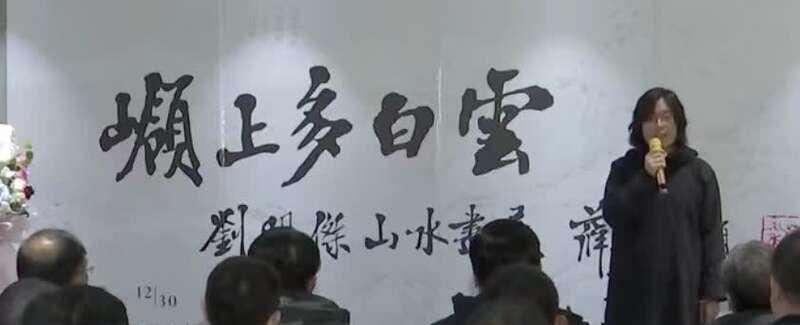 嶺上多白雲
劉明傑山水畫展 薛
12|30